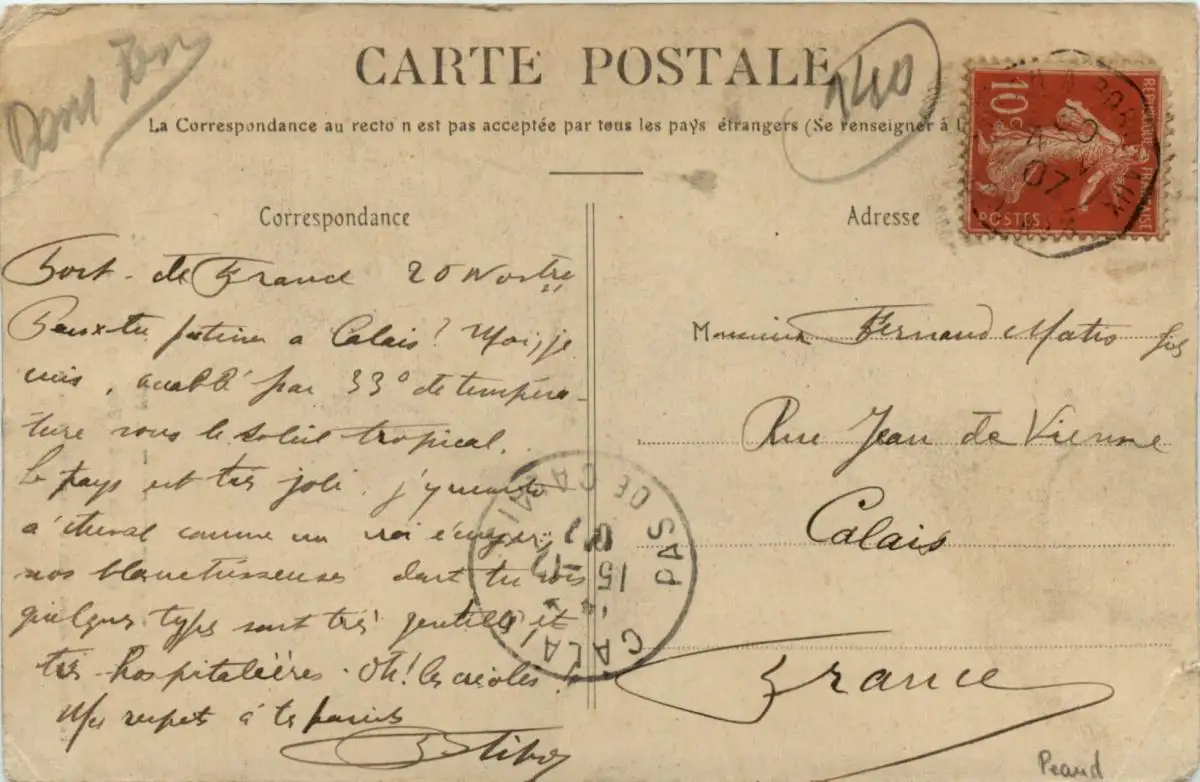 CARTE POSTALE
240
La Correspondance au recto n est pas acceptée par tous les pays étrangers (Se renseigner à l
REPUBLIQUE FRANÇAISE
10c
POSTES
07
Correspondance
Adresse
Fort-de France 20
Peux-tu patiner a Calais? Moi, je
suis, accablé par 33° de tempéra-
ture sous le soleil tropical.
Le pays est très joli. j'y monte
à cheval comme un roi
nos blanchisseuses dont tu vois
quelques types sont très gentilles et
très hospitalières. Oh! les créoles!
Mes respects à tes parents
Monsieur Fernand Matis fils
Rue Jean de Vienne
Calais
France
CALAIS
PAS DE CALAIS
15